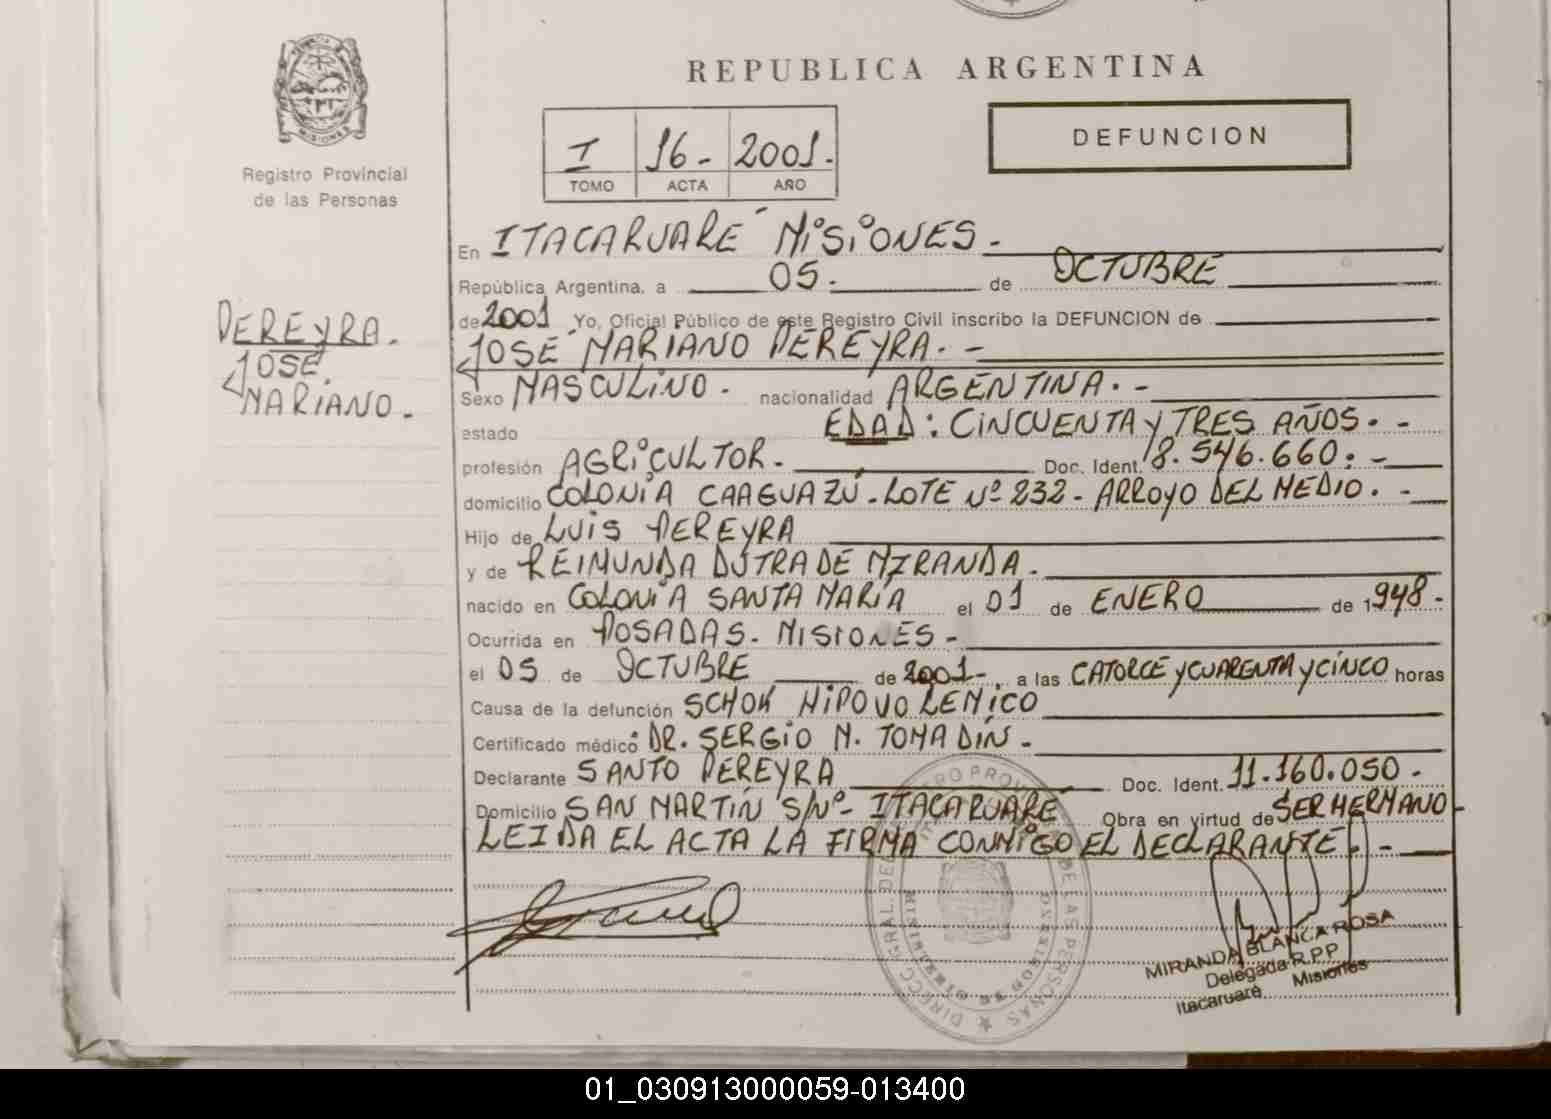 REPUBLICA ARGENTINA
MISIONES
Registro Provincial
de las Personas
I 16- 2001.
TOMO ACTA AÑO
DEFUNCION
PEREYRA.
JOSÉ.
MARIANO.
En ITACARUARE´ MISIONES -
República Argentina, a 05. de OCTUBRE
de 2001 Yo, Oficial Público de este Registro Civil inscribo la DEFUNCION de
JOSE´ MARIANO PEREYRA. -
Sexo MASCULINO. nacionalidad ARGENTINA. -
estado EDAD: CINCUENTA Y TRES AÑOS. -
profesión AGRICULTOR. Doc. Ident. 8.546.660. -
domicilio COLONIA CAAGUAZÚ - LOTE Nº 232 - ARROYO DEL MEDIO. -
Hijo de LUIS PEREYRA
y de REIMUNDA DUTRA DE MIRANDA.
nacido en COLONIA SANTA MARÍA el 01 de ENERO de 1948.
Ocurrida en POSADAS. MISIONES -
el 05 de OCTUBRE de 2001-, a las CATORCE Y CUARENTA Y CINCO horas
Causa de la defunción SCHOK HIPOVOLEMICO
Certificado médico: DR. SERGIO M. TOMADÍN.
Declarante SANTO PEREYRA Doc. Ident. 11.160.050.
Domicilio SAN MARTIN S/Nº- ITACARUARE Obra en virtud de SER HERMANO
LEIDA EL ACTA LA FIRMA CONMIGO EL DECLARANTE. -
MIRANDA BLANCA ROSA
Delegada R.P.P
Itacaruaré Misiones
01_030913000059-013400